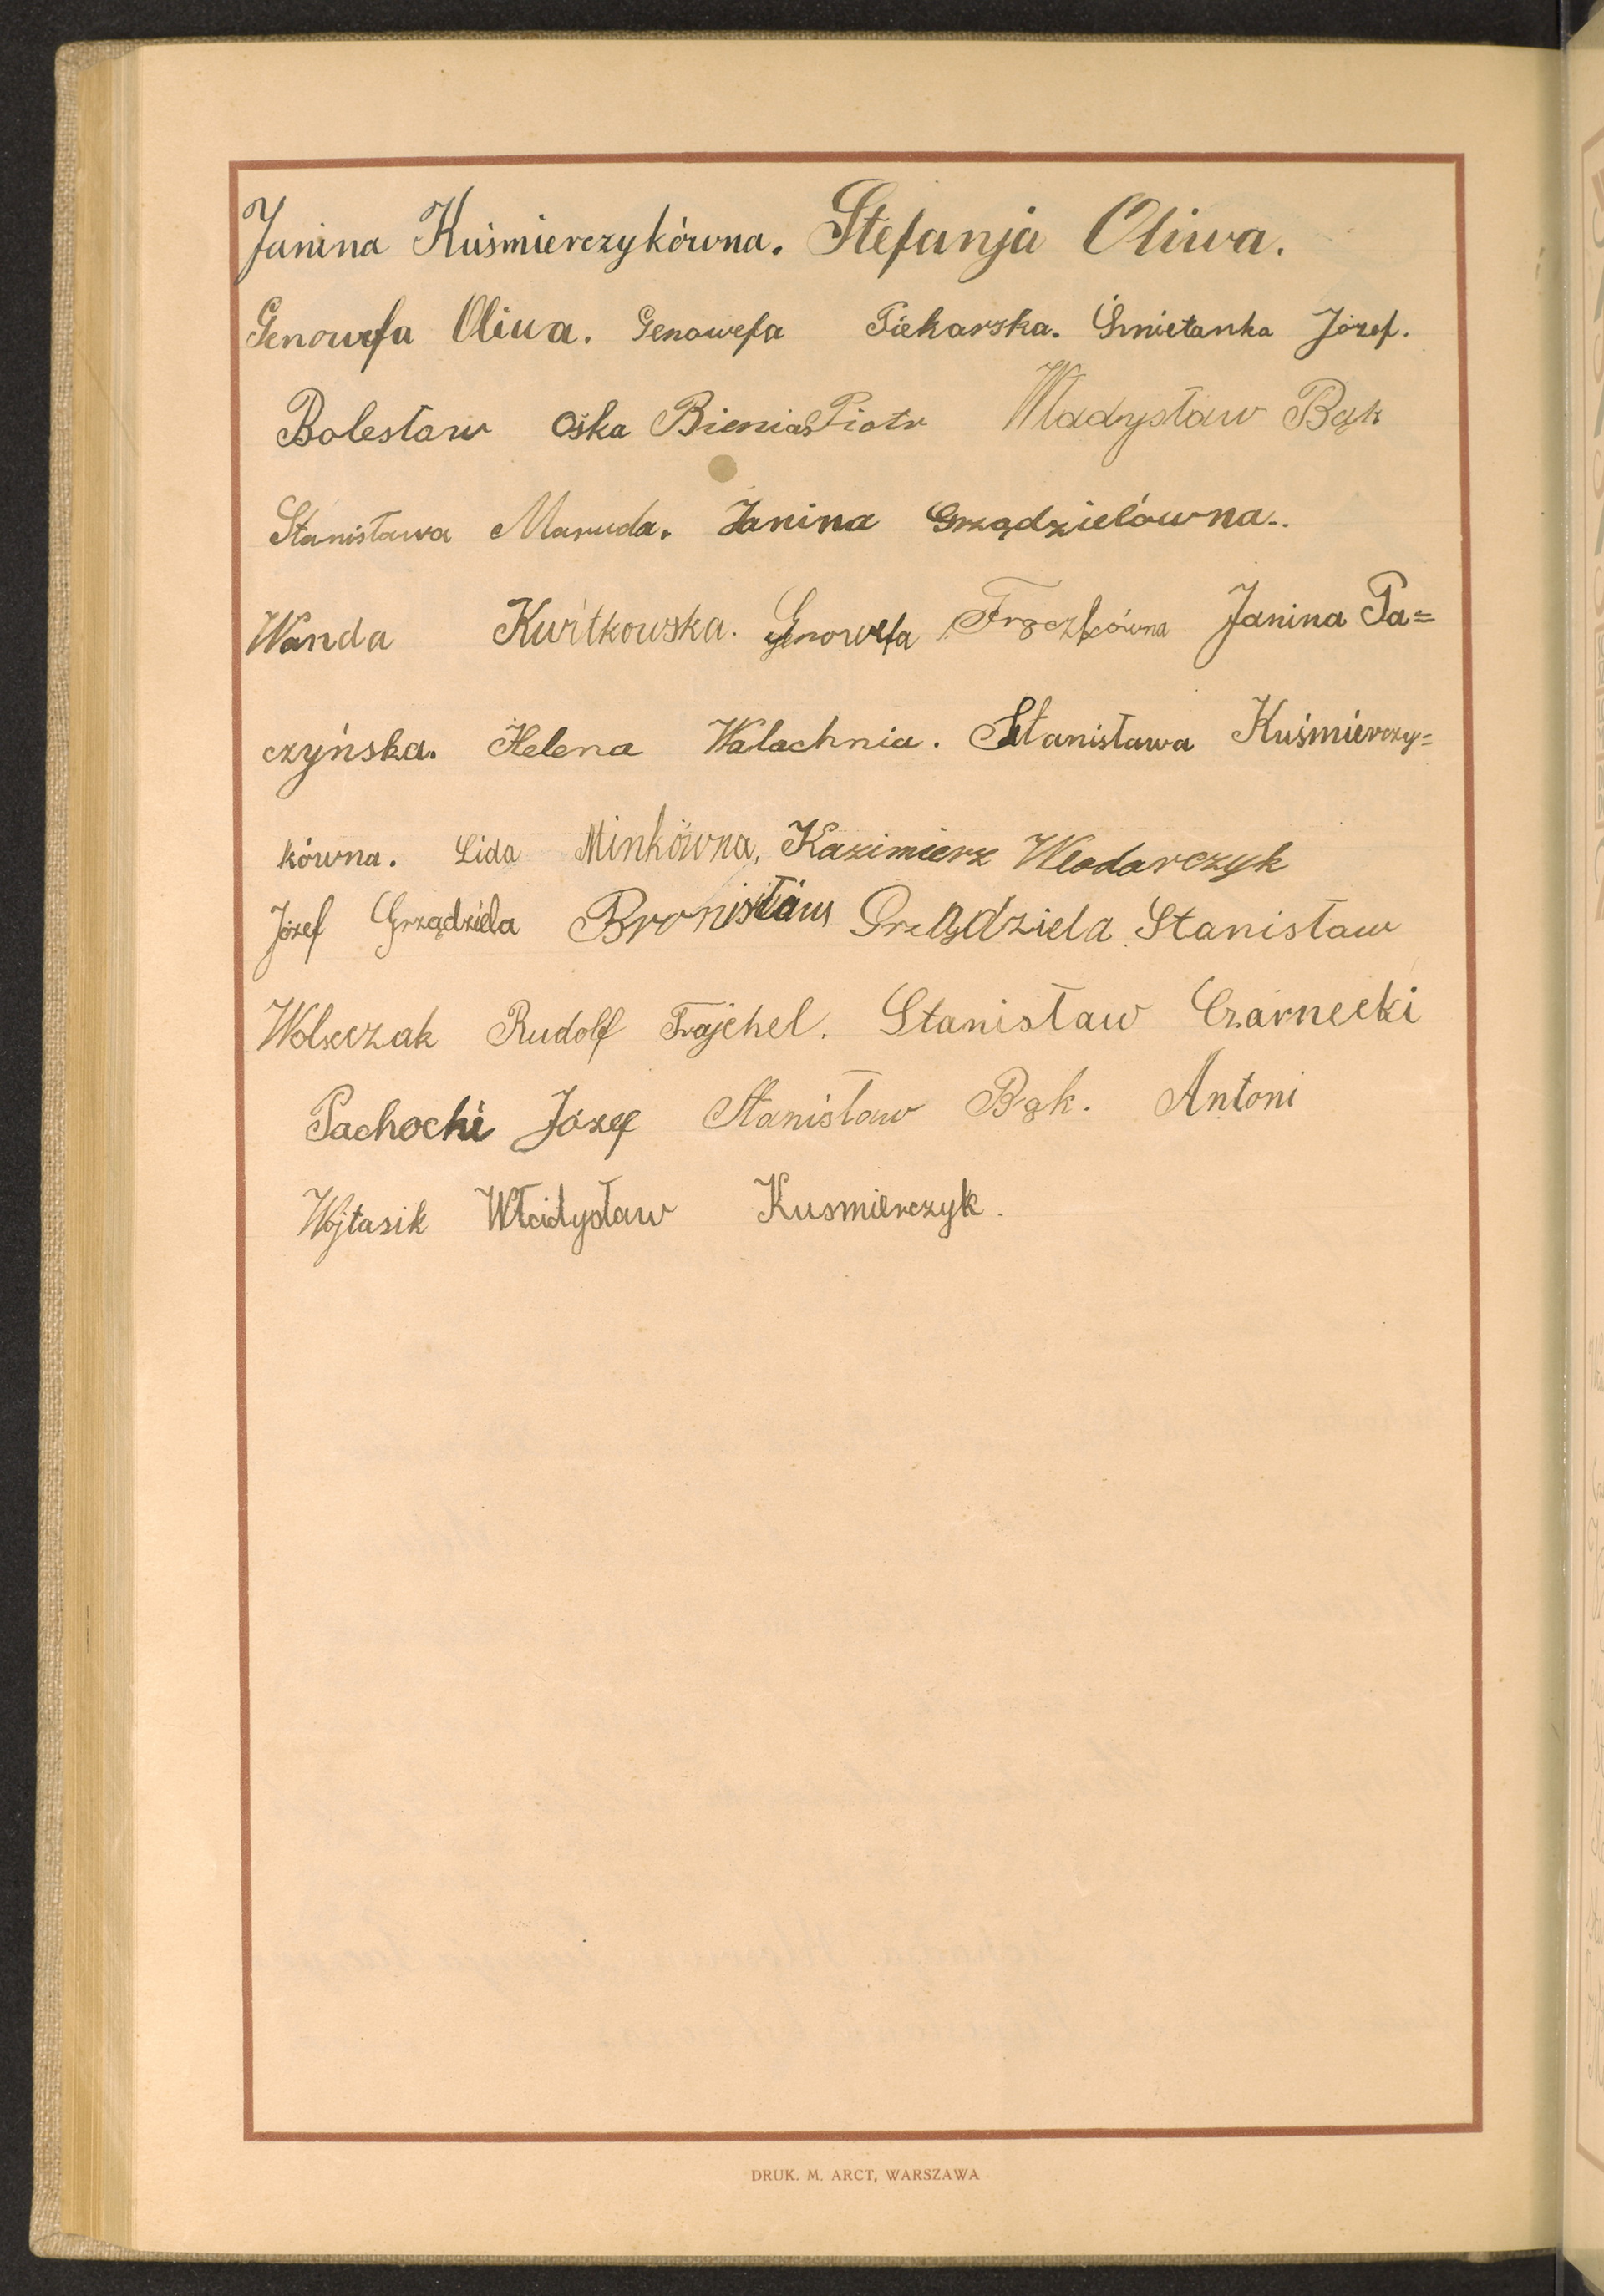 Janina Kuśmierczykówna. Stefanja Oliwa.
Genowefa Oliwa. Genowefa Piekarska. Śmietanka Józef.
Bolesław Ośka Bienias Piotr Władysław Bąk
Stanisława Maruda. Janina Grządzielówna..
Wanda Kwitkowska. Genowefa Frączkówna Janina Pa=
czyńska. Helena Walachnia. Stanisława Kuśmierczy=
kówna. Lida Minkówna, Kazimierz Włodarczyk
Józef Grządziela Bronisław Grządziela Stanisław
Wolszczak Rudolf Frajchel. Stanisław Czarnecki
Pachocki Józef Stanisław Bąk. Antoni
Wójtasik Władysław Kusmierczyk.
DRUK. M. ARCT, WARSZAWA